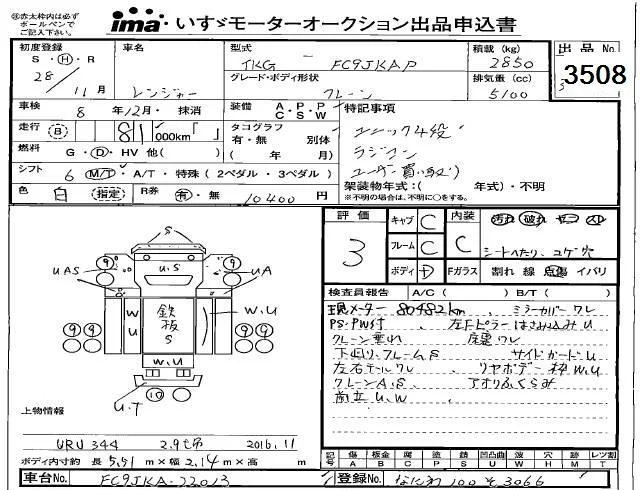 ※赤太枠内は必ず
ボールペンで
ご記入下さい。
ima いすゞモーターオークション出品申込書
初度登録 S・H・R 28/11月
車名 レンジャー
型式 TKG - FC9JKAP
グレード・ボディ形状 クレーン
積載(kg) 2850
排気量(cc) 5100
出品No. 3508
車検 8年12月・抹消
装備 A・P・P C・S・W
特記事項
ユニック4段
ラジコン
ユーザー買い取り
走行 B 81,000km「 」
タコグラフ 有・無 別体 ( 年 月)
燃料 G・D・HV 他( )
シフト 6 M/T・A/T・特殊(2ペダル・3ペダル)
架装物年式:( 年式)・不明
※不明の場合は、不明に○をする。
色 白 (指定)
R券 有・無 10400円
評価 3
キャブ C
フレーム C
ボディ D
内装 C
汚れ 破れ
シートへたり、コゲ穴
Fガラス 割れ 線 点傷 イバリ
検査員報告 A/C( ) B/T( )
現メーター 80482km 、 ミラーカバーワレ
PS・PW付 、 左Fピラーはさみ込みU
クレーン垂れ 、 庫裏ワレ
下廻り、フレームS サイドガードU
左右テールワレ 、 リヤボデー枠W.U
クレーンA.S 、 アオリふくらみ
前立U.W 、
S
9 9
UAS U.S UA
W U 鉄板 S W.U
9 9 9 9
W.U
U.T 10
上物情報
URU344 2.9t吊 2016.11
ボディ内寸約 長5.51m×幅2.14m×高 m
記号 傷A 板金B 腐C 塗P 錆S 凹凸曲U 波W ボディ穴H 歪M レツ割T
車台No. FC9JKA-22013
登録No. なにわ100そ3066